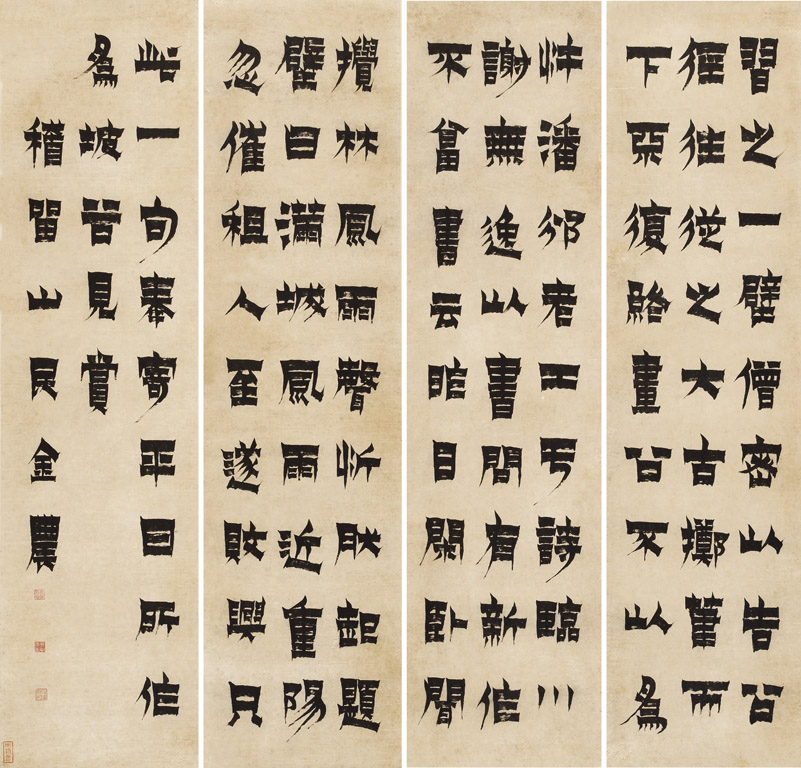 習之一壁僧密以告公
徑往從之大古擲筆而
下亞復終畫公不以為
忤潘邠老工亏詩臨川
謝無逸以書問有新作
不畣書云昨日閑臥聞
攪林風雨聲忻肰起題
壁曰滿城風雨近重陽
忽催租人至遂敗興只
此一句奉寄平日所作
為坡谷見賞
稽留山民金農